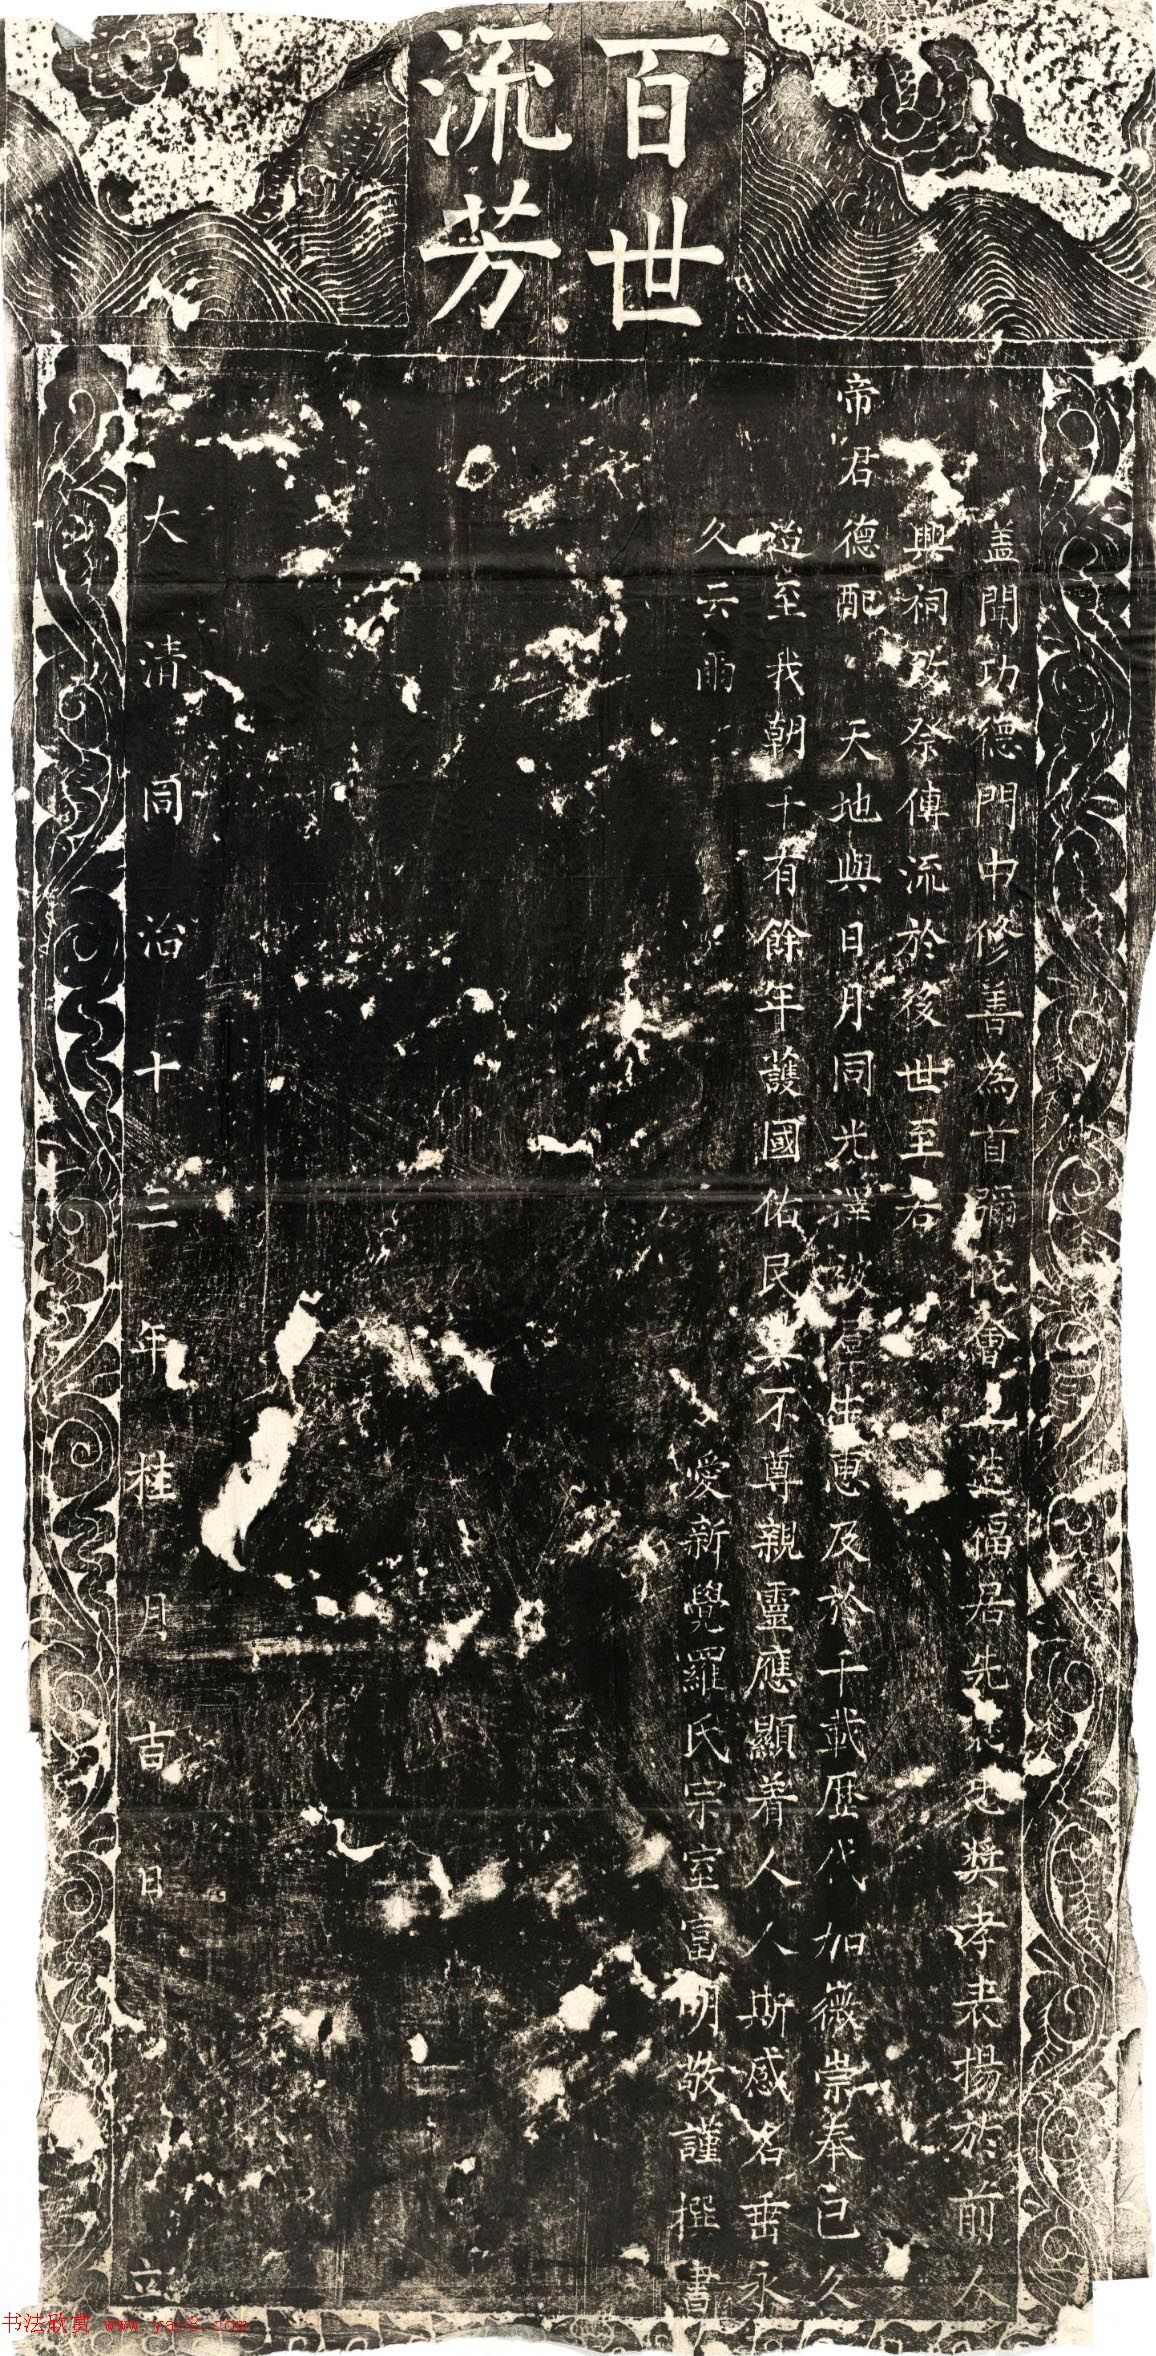 百世
流芳
蓋聞功德門中修善為首彌陀會上造福居先 獎孝表揚於前人
興祠致祭傳流於後世至若
帝君德配 天地與日月同光澤 生惠及於千載歷代加徽崇奉已久
迨至我朝千有餘年護國佑民 不尊親靈應顯着人人斯感名垂永
久云爾
愛新覺羅氏宗室富明敬謹撰書
大清同治十三年桂月吉日立
书法欣赏 www.yac8.com